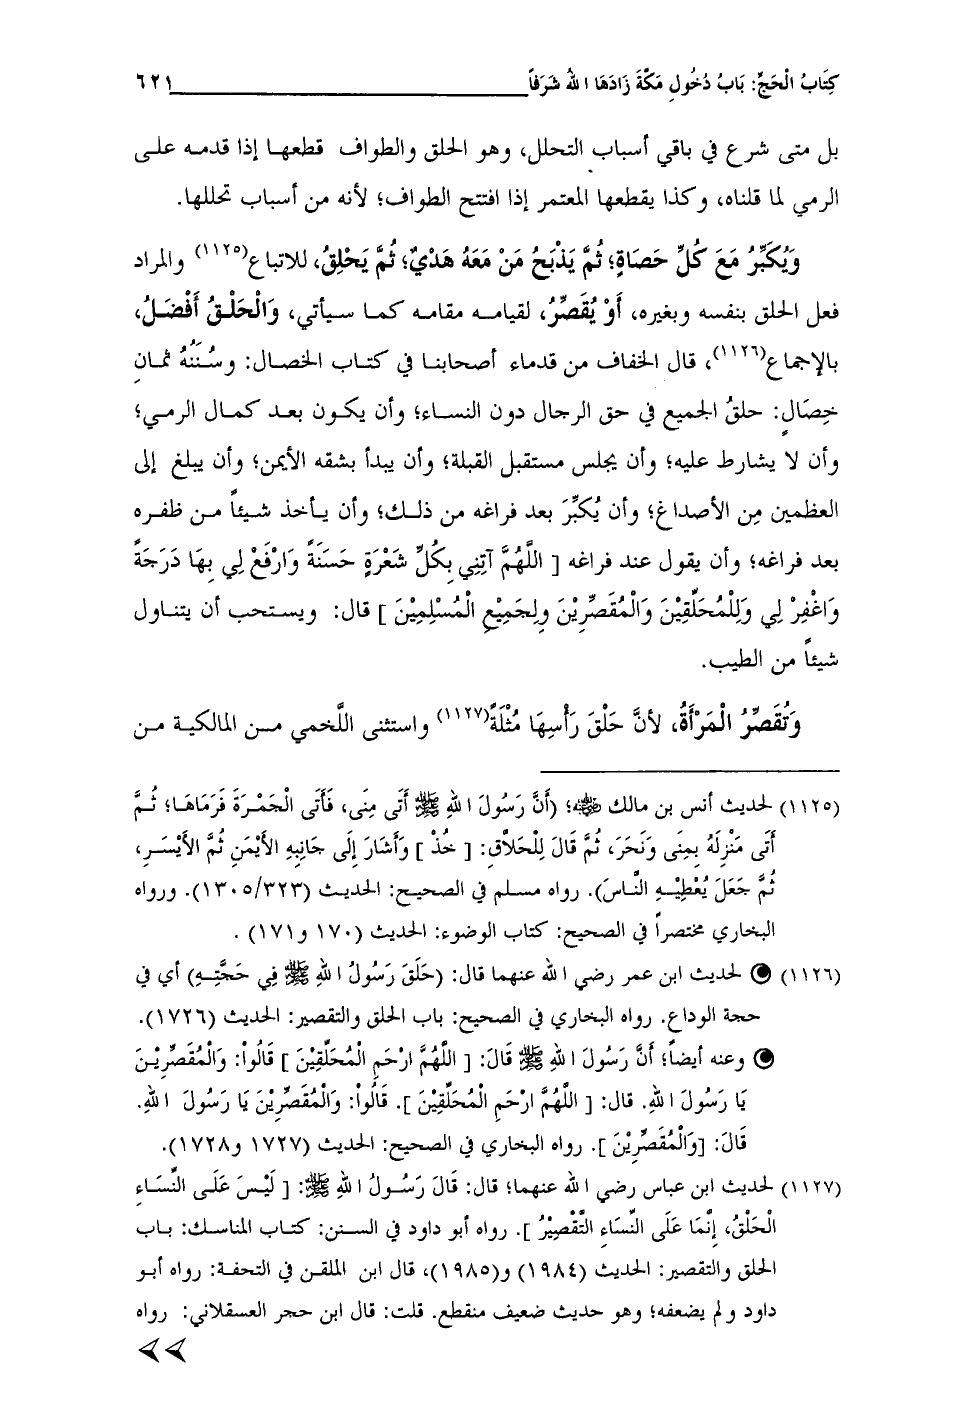 كِتَابُ الْحَجِّ: بَابُ دُخُولِ مَكَّةَ زَادَهَا اللهُ شَرَفاً ٦٢١
بل متى شرع في باقي أسباب التحلل، وهو الحلق والطواف قطعهـا إذا قدمـه علـى
الرمي لما قلناه، وكذا يقطعها المعتمر إذا افتتح الطواف؛ لأنه من أسباب تحللها.
وَيُكَبِّرُ مَعَ كُلِّ حَصَاةٍ؛ ثُمَّ يَذْبَحُ مَنْ مَعَهُ هَدْيٌ؛ ثُمَّ يَحْلِقُ، للاتباع(١١٢٥) والمراد
فعل الحلق بنفسه وبغيره، أَوْ يُقَصِّرُ، لقيامـه مقامـه كمـا سـيأتي، وَالْحَلْـقُ أَفْضَـلُ،
بالإجماع(١١٢٦)، قال الخفاف من قدماء أصحابنا في كتـاب الخصـال: وسُـنَنُهُ ثمـانِ
خِصَالٍ: حلقُ الجميع في حق الرجال دون النسـاء؛ وأن يكـون بعـد كمـال الرمـي؛
وأن لا يشارط عليه؛ وأن يجلس مستقبل القبلة؛ وأن يبدأ بشقه الأيمن؛ وأن يبلغ إلى
العظمين مِن الأصداغ؛ وأن يُكبِّرَ بعد فراغه من ذلـك؛ وأن يـأخذ شـيئاً مـن ظفـره
بعد فراغه؛ وأن يقول عند فراغه [ اللَّهُمَّ آتِنِي بِكُلِّ شَعْرَةٍ حَسَنَةً وَارْفَعْ لِي بِهَا دَرَجَةً
وَاغْفِرْ لِي وَلِلْمُحَلِّقِيْنَ وَالْمُقَصِّرِيْنَ ولِجَمِيْعِ الْمُسْلِمِيْنَ ] قال: ويسـتحب أن يتنـاول
شيئاً من الطيب.
وَتُقَصِّرُ الْمَرْأَةُ، لأنَّ حَلْقَ رَأْسِهَا مُثْلَةٌ(١١٢٧) واستثنى اللَّخمي مـن المالكيـة مـن
(١١٢٥) لحديث أنس بن مالك ﷺ؛ (أَنَّ رَسُولَ اللهِ ﷺ أَتَى مِنَى، فَأَتَى الْجَمْـرَةَ فَرَمَاهَـا؛ ثُـمَّ
أَتَى مَنْزِلَهُ بِمِنَى وَنَحَرَ، ثُمَّ قَالَ لِلْحَلاَّقِ: [ خُذْ ] وَأَشَارَ إِلَى جَانِبِهِ الأَيْمَنِ ثُمَّ الأَيْسَـرِ،
ثُمَّ جَعَلَ يُعْطِيْـهِ النَّاسَ). رواه مسلم في الصحيح: الحديث (١٣٠٥/٣٢٣). ورواه
البخاري مختصراً في الصحيح: كتاب الوضوء: الحديث (١٧٠ و١٧١) .
(١١٢٦) لحديث ابن عمر رضي الله عنهما قال: (حَلَقَ رَسُولُ اللهِ ﷺ فِي حَجَّتِـهِ) أي في
حجة الوداع. رواه البخاري في الصحيح: باب الحلق والتقصير: الحديث (١٧٢٦).
وعنه أيضاً؛ أَنَّ رَسُولَ اللهِ ﷺ قَالَ: [ اللَّهُمَّ ارْحَمِ الْمُحَلِّقِيْنَ ] قَالُواْ: وَالْمُقَصِّرِيْـنَ
يَا رَسُولَ اللهِ. قال: [ اللَّهُمَّ ارْحَمِ الْمُحَلِّقِيْنَ ]. قَالُواْ: وَالْمُقَصِّرِيْنَ يَا رَسُولَ اللهِ.
قَالَ: [وَالْمُقَصِّرِيْنَ ]. رواه البخاري في الصحيح: الحديث (١٧٢٧ و١٧٢٨).
(١١٢٧) لحديث ابن عباس رضي الله عنهما؛ قال: قَالَ رَسُـولُ اللهِ ﷺ: [ لَيْـسَ عَلَـى النِّسَـاءِ
الْحَلْقُ، إِنَّمَا عَلَى النِّسَاءِ التَّقْصِيْرُ ]. رواه أبو داود في السـنن: كتـاب المناسـك: بـاب
الحلق والتقصير: الحديث (١٩٨٤) و(١٩٨٥)، قال ابن الملقـن في التحفـة: رواه أبـو
داود ولم يضعفه؛ وهو حديث ضعيف منقطع. قلت: قال ابن حجر العسقلاني: رواه